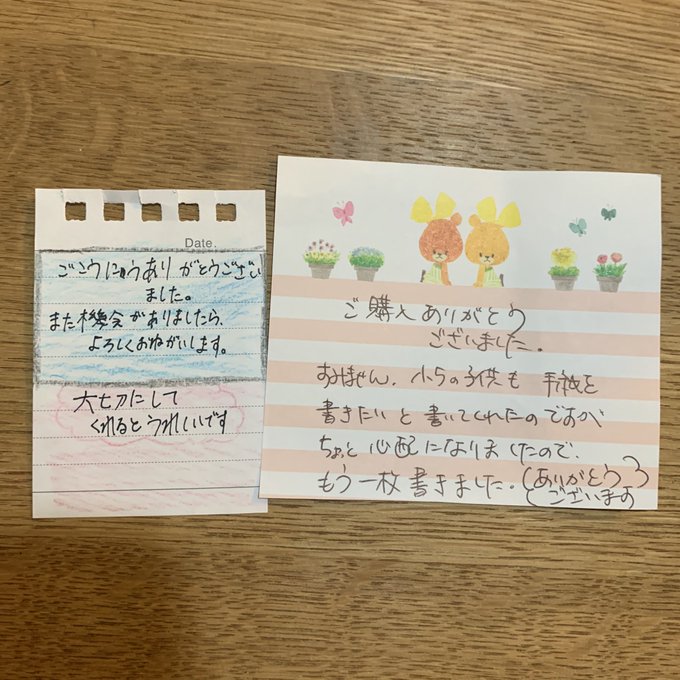 Date.
ごこうにゅうありがとうござい
ました。
また機会がありましたら、
よろしくおねがいします。
大切にして
くれるとうれしいです
ご購入ありがとう
ございました。
すみません、小5の子供も手紙を
書きたいと書いてくれたのですが
ちょっと心配になりましたので、
もう一枚書きました。(ありがとう
ございます)